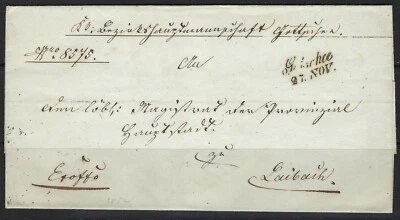 K.k. Bezirkshauptmannschaft Gottschee.
Nro 8575.
An
27. NOV.
den löbl: Magistrat der Provinzial
Hauptstadt.
zu
Exoffo
Laibach.